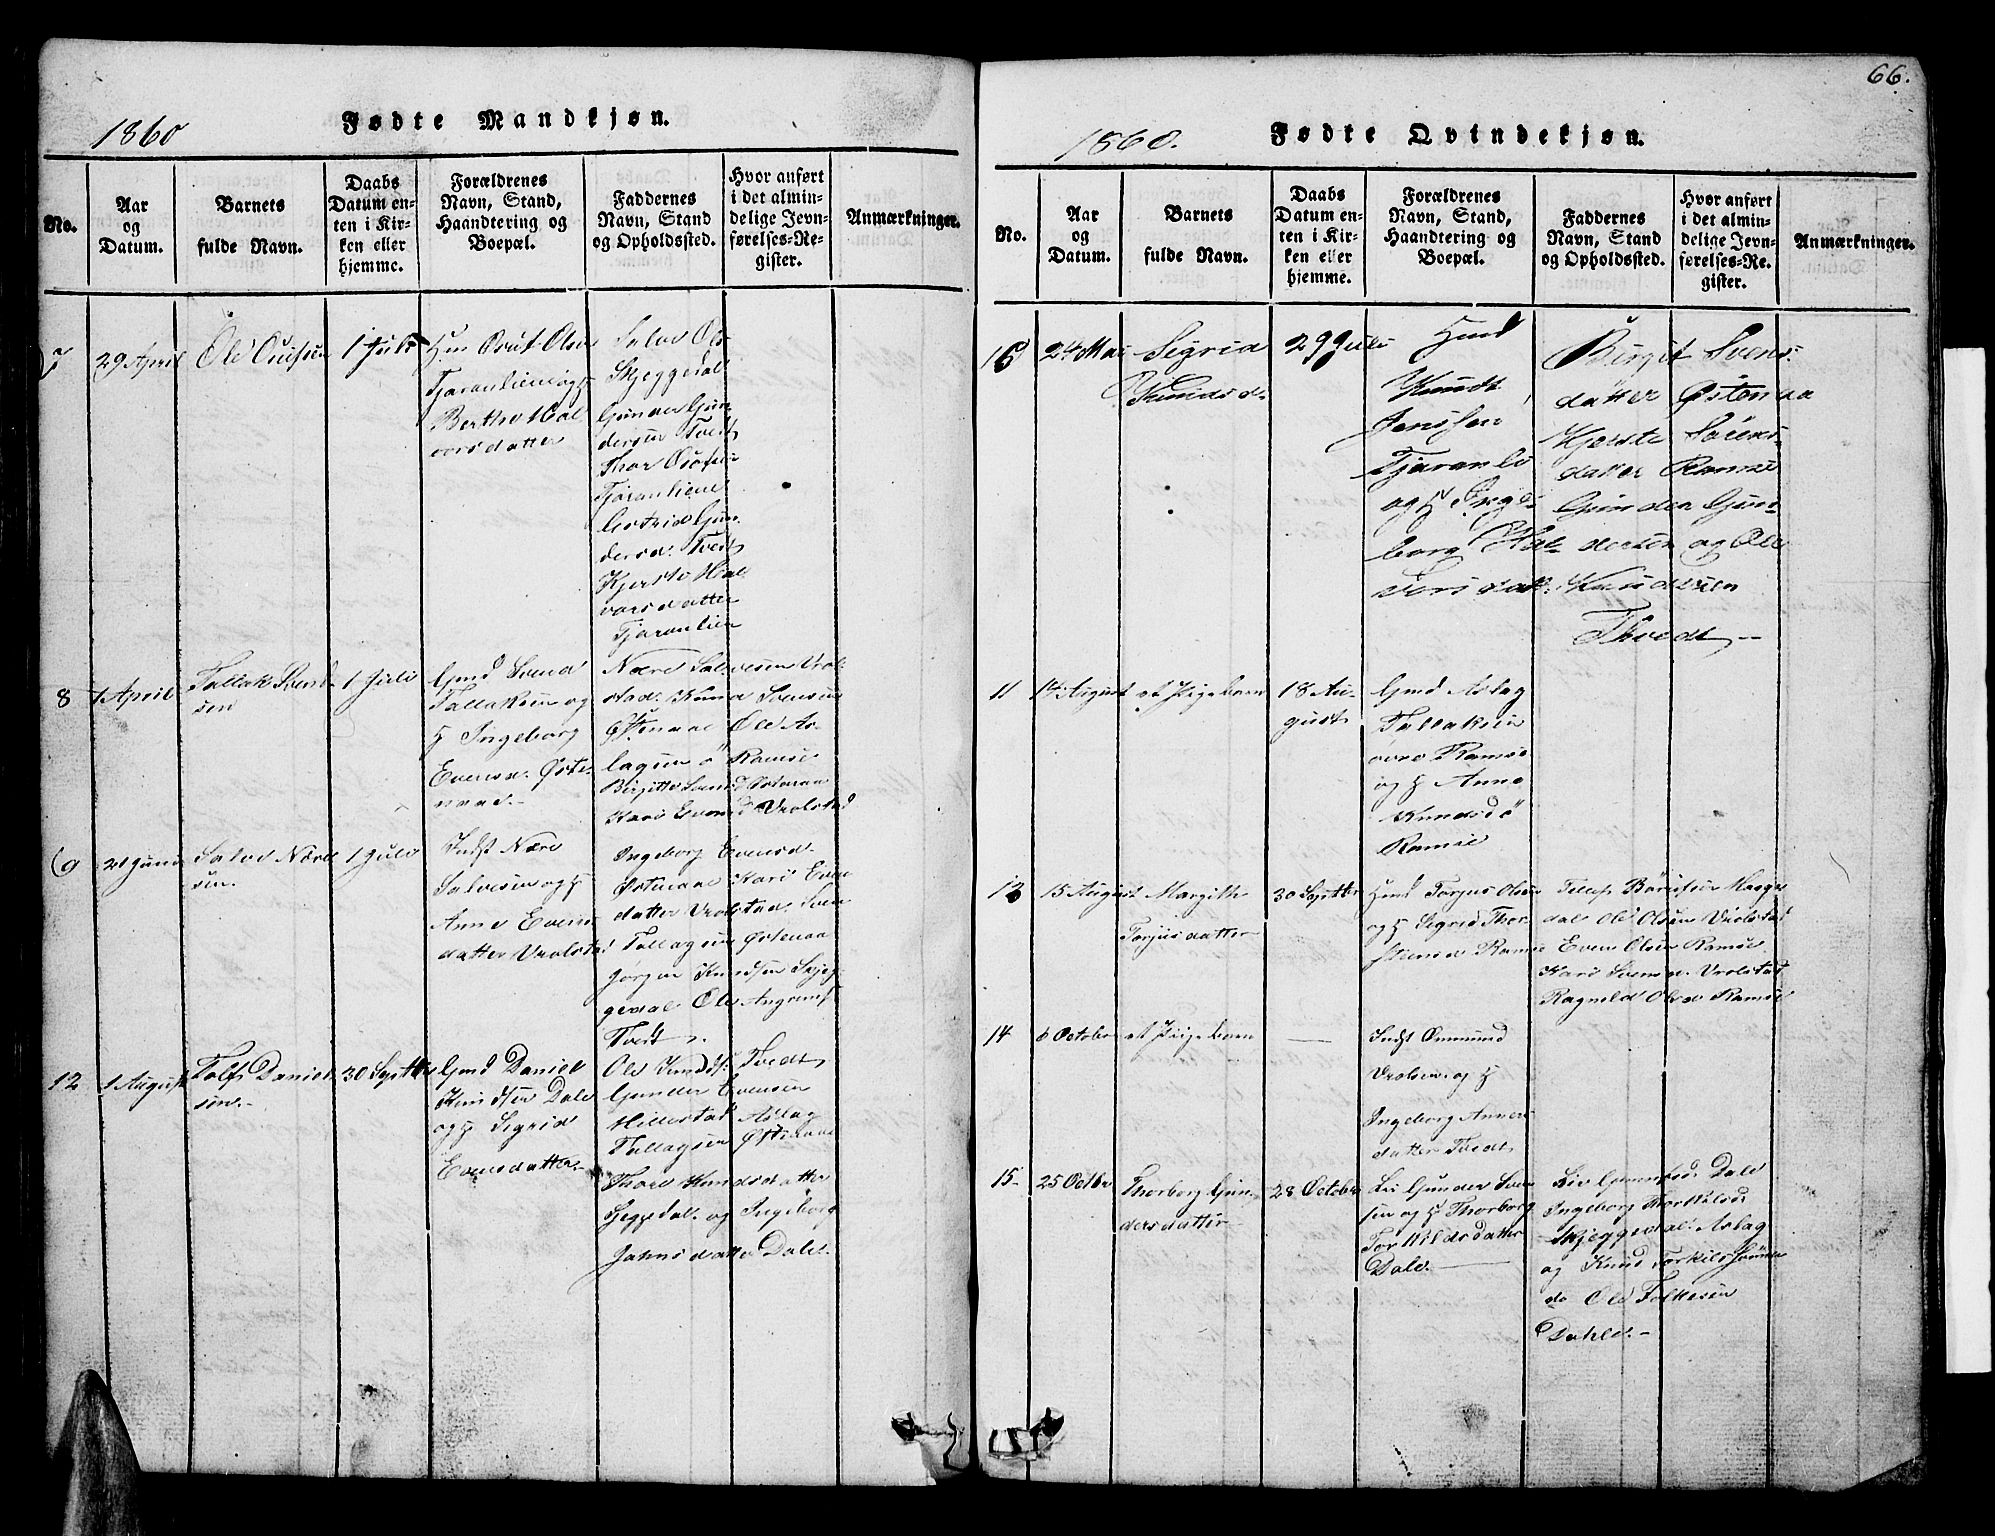 66.
1860
Fødte Mandkjøn.
No.
Aar
og
Datum.
Barnets
fulde Navn.
Daabs
Datum en-
ten i Kir-
ken eller
hjemme.
Forældrenes
Navn, Stand,
Haandtering og
Boepæl.
Faddernes
Navn, Stand
og Opholdssted.
Hvor anført
i det almin-
delige Jevn-
førelses-Re-
gister.
Anmærkninger.
7
29 April
Ole
1 Juli
Olsen
Tjaranliene og H
Berthe Hal
vorsdatter
Salve Ols
Skjeggedal
Gunder Gun
dersen Tvedt
Thor
Tjøranliene
Gun
dersd. Tvedt
Kjerste Hal
vorsdatter
Tjaranlien
8
1 April
Tallak Svend
sen
1 Juli
Gmd Svend
Tallaksen og
H Ingeborg
Evensd. Øste-
naae.-
Nære Salvesen Vrol
stad. Svensen
Østenaae Ole As-
lagsen Ramse
Birgitte Svensd Østenaa
Kari Evensd Vrolstad
9
21 Juni
Salve Nære
sen.
1 Juli
Indst Nære
Salvesen og H
Anne Evens
datter Vrolstad
Ingeborg Evensd.
Østenaae Kari Even
datter Vrolstad. Sven
Tallagsen Østenaa
Jørgen Knudsen Skjeg
gedal Ole
Tvedt
12
1 August
Daniel
sen.-
30 Septbr
Gmd Daniel
Knudsen Dale
og H Sigrid
Evensdatter.-
Ole Knuds. Tvedt
Gunder Evensen
Hillestad Aslag
Tallagsen Østenaae
Thore Knudsdatter
og Ingeborg
Jahnsdatter Dale.
1860.
Fødte Qvindekjøn.
No.
Aar
og
Datum.
Barnets
fulde Navn.
Daabs
Datum en-
ten i Kir-
ken eller
hjemme.
Forældrenes
Navn, Stand,
Haandtering og
Boepæl.
Faddernes
Navn, Stand
og Opholdssted.
Hvor anført
i det almin-
delige Jevn-
førelses-Re-
gister.
Anmærkninger.
24 Mai
Sigrid
Knudsd.
29 Juli
Hmd
Knudt
Jenssen
Tjaranli
og H Inge-
borg Hal-
vorsdatt.
Birgit Svens-
datter Østenaa
Kjerste Sörens-
datter Ramse
Gunder Gun-
dersen og Ole
Knudsen
Thvedt -
11
14 August
et Pigebarn
18 Au-
gust
Gmd Aslag
Tallaksen
øvre Ramse
og H Anne
Knudsd ö
Ramse
13
15 August
Margith
Torjusdatter
30 Septbr
Hmd Torjus Olsen
og H Sigrid Thor-
stensd Ramse
dal Ole Olsen Vrolstad
Even Olsen Ramse
Kari Svensd. Vrolstad
Ragnild Olsd Ramse
14
6 October
et Pigebarn
—
Indst Ommund
Vrolsen og H
Ingeborg Anners
datter Tvedt
15
25 Octbr
Thorborg Gun-
dersdatter
28 October
Gunder Sven
sen og H Thorborg
Torkildsdatter
Dale. —
Liv Gunnufsd Dale
Ingeborg Thorkilsd.
Skjeggedal. Aslag
og Knud Torkils
do Ole Folkesen
Dahle.-